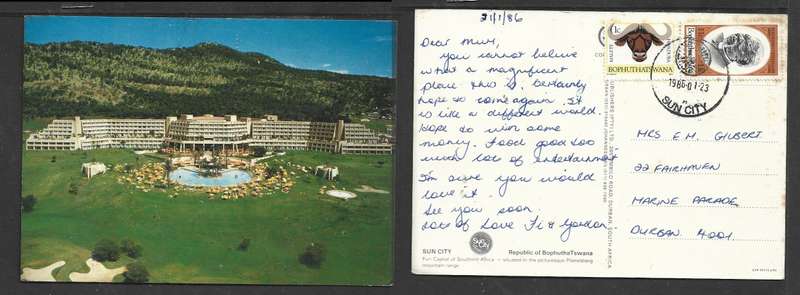 21/1/86
Dear Mum,
you cannot believe
what a magnificent
place this is. Certainly
hope to come again. It
is like a different world.
Hope to win some
money. Food good too
much lots of entertainment
I'm sure you would
love it.
See you soon.
Lots of Love
Gordon
SUN CITY
Republic of BophuthaTswana
Fun Capital of Southern Africa – situated in the picturesque Pilanesberg
mountain range
SUN CITY
1c
BOPHUTHATSWANA
1986-01-23
SUN CITY
MRS E.M. GILBERT
22 FAIRHAVEN
MARINE PARADE
DURBAN 4001.